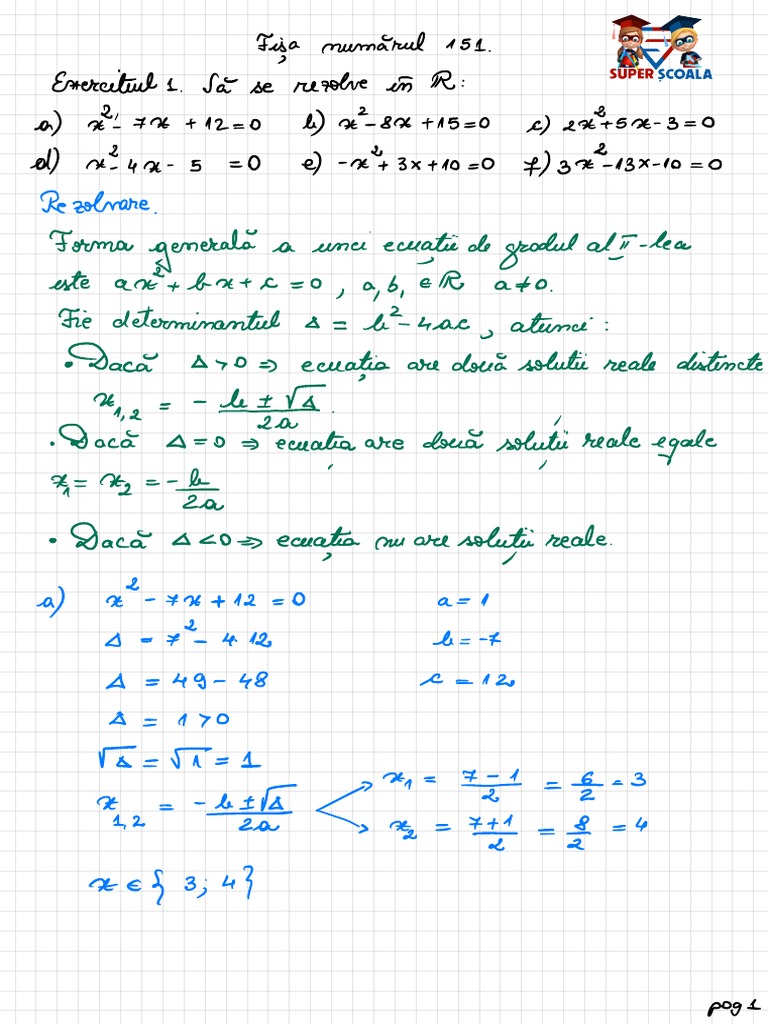 Fișa numărul 151.
SUPER ȘCOALA
Exercițiul 1. Să se rezolve în ℝ:
a) x² - 7x + 12 = 0 b) x² - 8x + 15 = 0 c) 2x² + 5x - 3 = 0
d) x² - 4x - 5 = 0 e) -x² + 3x + 10 = 0 f) 3x² - 13x - 10 = 0
Rezolvare.
Forma generală a unei ecuații de gradul al II-lea
este ax² + bx + c = 0, a, b, ∈ ℝ a ≠ 0.
Fie determinantul Δ = b² - 4ac, atunci:
• Dacă Δ > 0 ⇒ ecuația are două soluții reale distincte
x₁,₂ = -b ± √Δ / 2a.
• Dacă Δ = 0 ⇒ ecuația are două soluții reale egale
x₁ = x₂ = -b / 2a
• Dacă Δ < 0 ⇒ ecuația nu are soluții reale.
a) x² - 7x + 12 = 0 a = 1
Δ = 7² - 4·12 b = -7
Δ = 49 - 48 c = 12
Δ = 1 > 0
√Δ = √1 = 1
x₁,₂ = -b ± √Δ / 2a
x₁ = 7 - 1 / 2 = 6 / 2 = 3
x₂ = 7 + 1 / 2 = 8 / 2 = 4
x ∈ { 3; 4}
pag 1